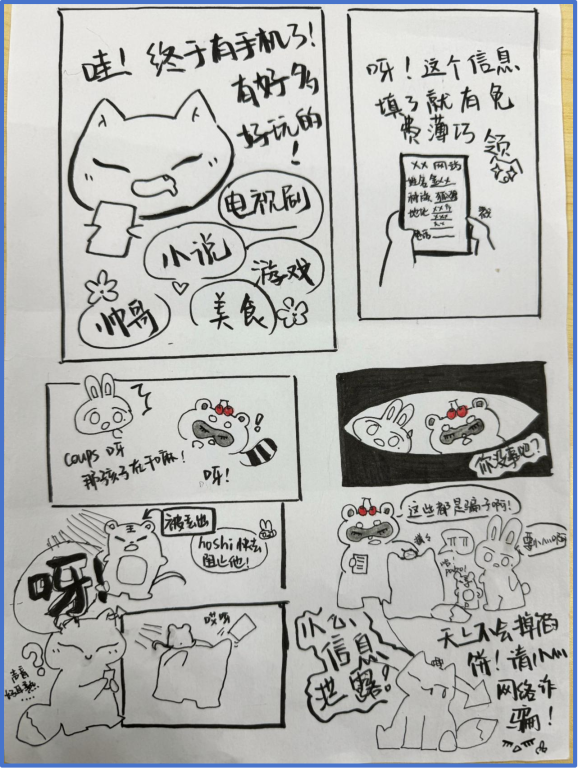 哇！终于有手机了！
有好多
好玩的！
电视剧
小说
游戏
帅哥
美食
呀！这个信息
填了就有免
费薄巧领
XX网站
姓名
种族
地址
电话
coups呀
那孩子在干嘛！
呀！
你没事吧？
被丢出
hoshi快去
阻止他！
呀！
声音
好耳熟....
哎呦
这些都是骗子啊！
要小心啊
小心
信息
泄露！
天上不会掉馅
饼！请小心
网络诈
骗！